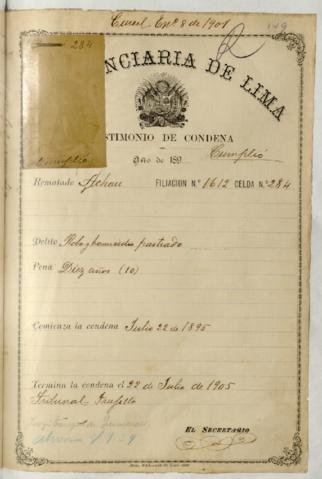 Enero 8 de 1901
149
284
NCIARIA DE LIMA
STIMONIO DE CONDENA
Cumplió Año de 189 Cumplió
Rematado Achau FILIACION N.º 1612 CELDA N.º 284
Delito Robo y homicidio frustrado
Pena Diez años (10)
Comienza la condena Julio 22 de 1895
Termina la condena el 22 de Julio de 1905
Tribunal Trujillo
EL SECRETARIO